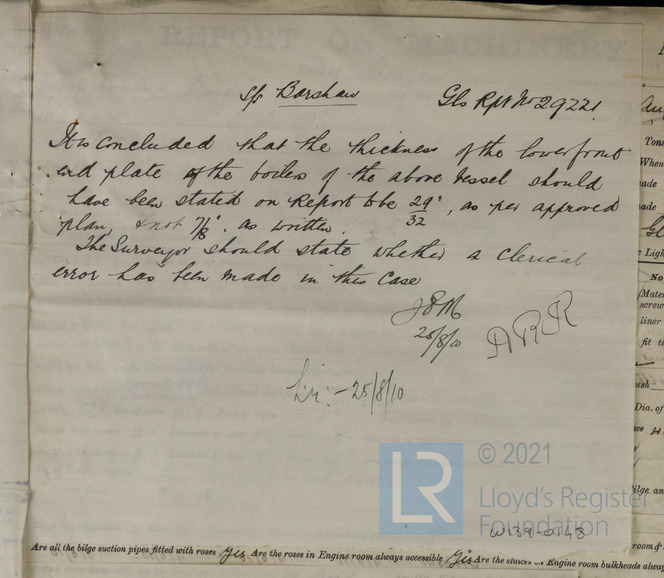 REPORT ON MACHINERY
S/S Barshaw Gls Rpt No 29221
It is concluded that the thickness of the lower front
end plate of the boiler of the above vessel should
have been stated on Report to be 29/32", as per approved
plan, & not 7/8". as written.
The Surveyor should state whether a clerical
error has been made in this case
25/8/10
ARR
25/8/10
© 2021
LR
Lloyd's Register
Foundation
W134-0148
Are all the bilge suction pipes fitted with roses Yes Are the roses in Engine room always accessible Yes Are the sluices on Engine room bulkheads always
Tons
When
made
made
No
screw
liner
fit
Dia. of